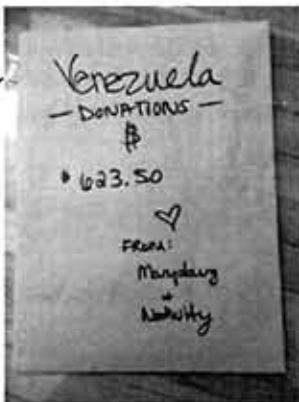 Venezuela
— DONATIONS —
$
$ 623.50
♡
FROM:
+
Nativity